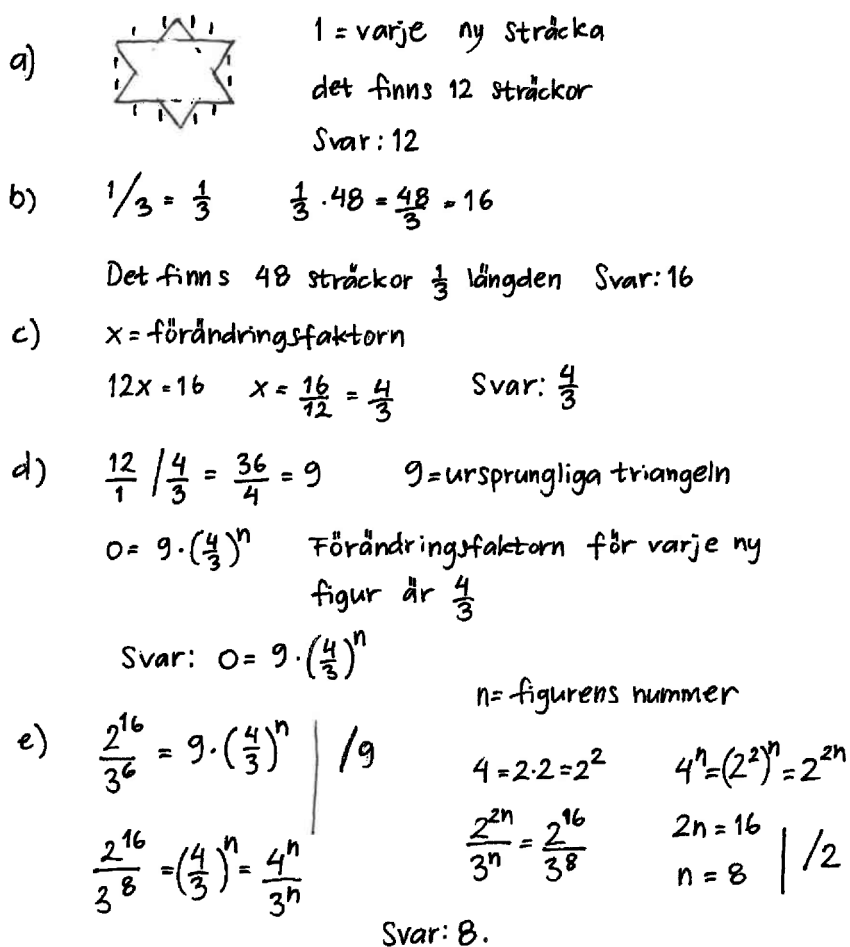 a) 1 = varje ny sträcka
det finns 12 sträckor
Svar: 12
b) 1/3 = 1/3 1/3 · 48 = 48/3 = 16
Det finns 48 sträckor 1/3 längden Svar: 16
c) x = förändringsfaktorn
12x = 16 x = 16/12 = 4/3 Svar: 4/3
d) 12/1 / 4/3 = 36/4 = 9 9 = ursprungliga triangeln
O = 9·(4/3)^n Förändringsfaktorn för varje ny
figur är 4/3
Svar: O = 9·(4/3)^n
n = figurens nummer
e) 2^16/3^6 = 9·(4/3)^n | /9
4 = 2·2 = 2^2 4^n = (2^2)^n = 2^2n
2^16/3^8 = (4/3)^n = 4^n/3^n
2^2n/3^n = 2^16/3^8 2n = 16 | /2
n = 8
Svar: 8.